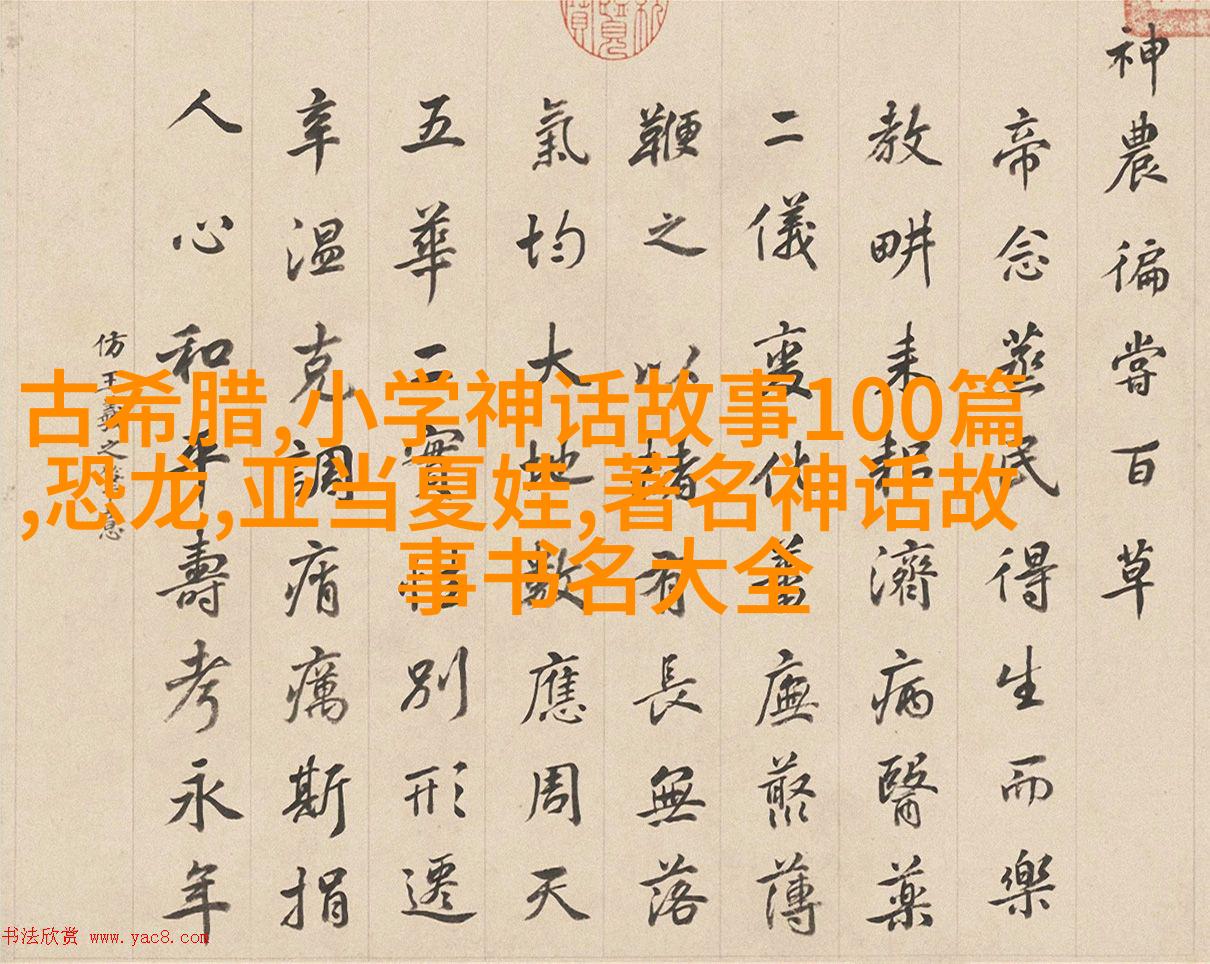 神農徧嘗百草
帝念蒸民得生而樂
教畊耒耜濟病醫藥
二儀變化廡藂薄
鞭之以赭有長無落
氣均大地數應周天
五華二實別形遷
辛溫克調痟癘斯捐
人心和平壽考永年
仿王羲之意
古希腊,小学神话故事100篇
,恐龙,亚当夏娃,著名神话故
事书名大全
书法欣赏 www.yac8.com